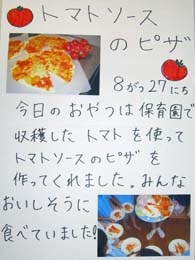 トマトソース
のピザ
8がつ27にち
今日のおやつは保育園で
収穫したトマトを使って
トマトソースのピザを
作ってくれました。みんな
おいしそうに
食べていました!